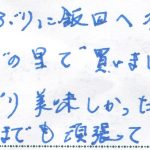 ぶりに飯田へ
の里で買いまし
り美味しかった
までも頑張って